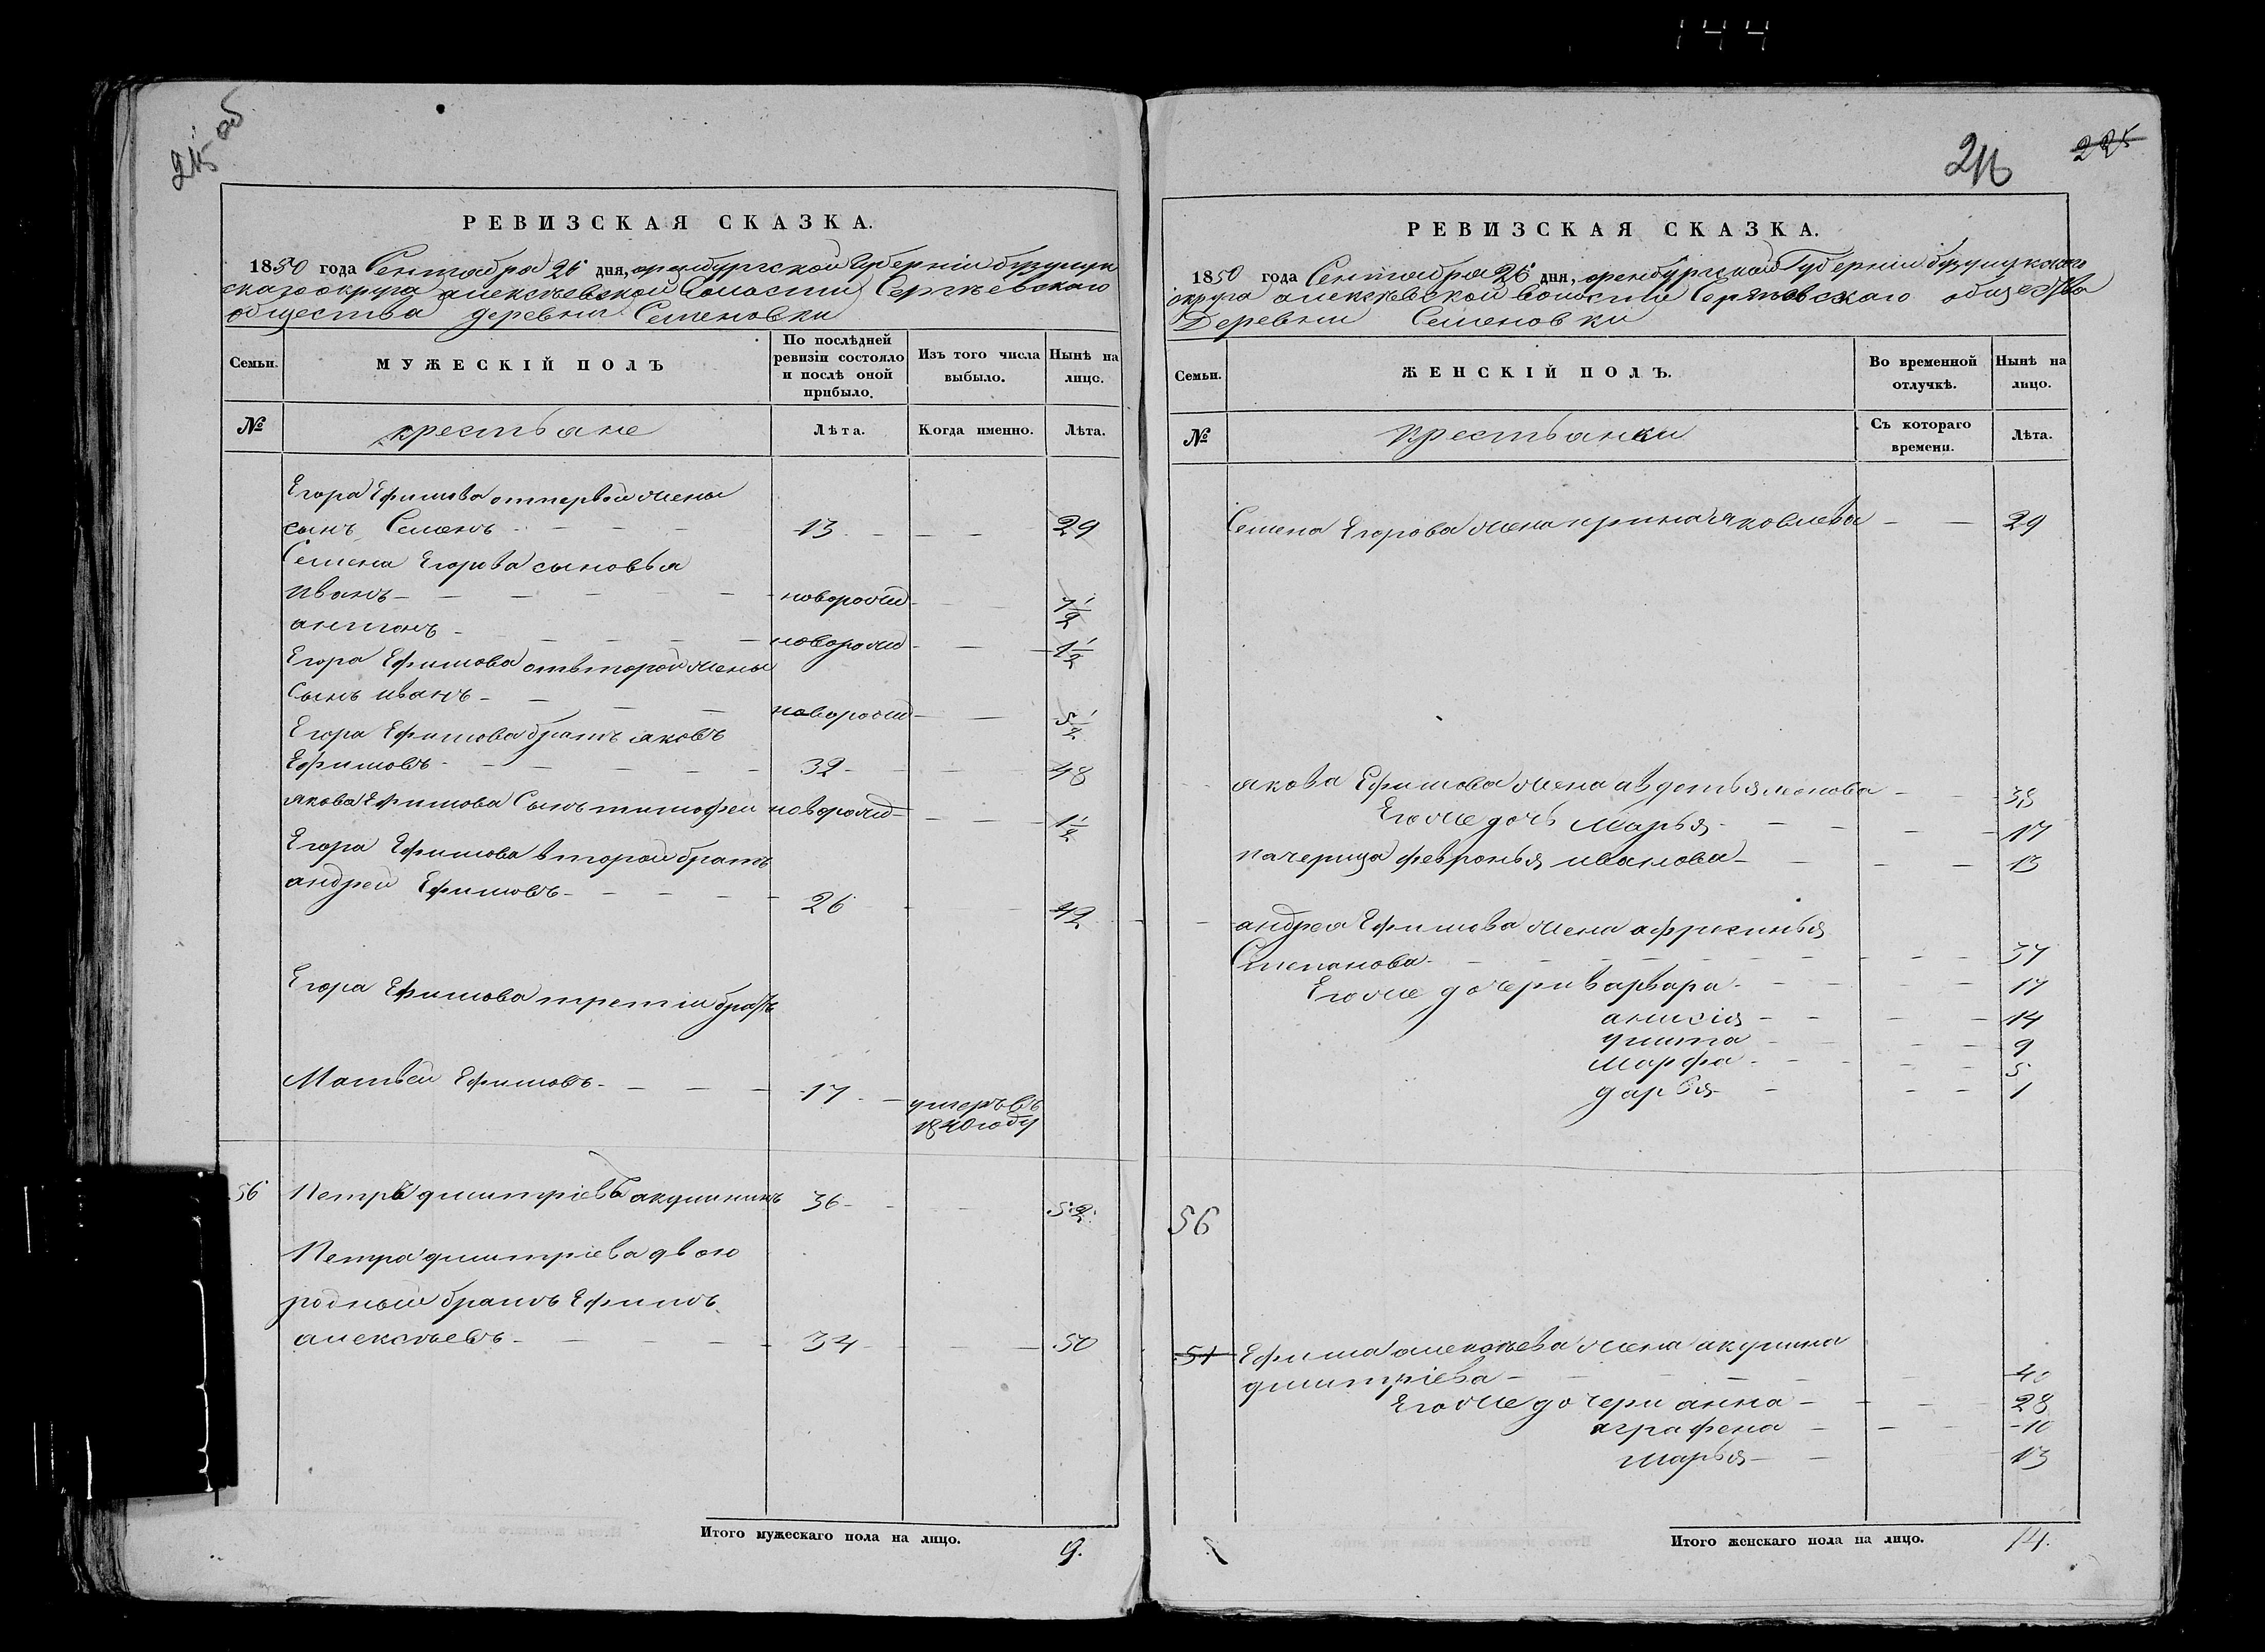 144
215 об
РЕВИЗСКАЯ СКАЗКА.
1850 года Сентября 26 дня, оренбургской Губерніи бузулук
скаго округа алексѣевской волости Сергѣевскаго
общества деревни Семеновки
Семьи.
МУЖЕСКІЙ ПОЛЪ
По послѣдней ревизіи состояло и послѣ оной прибыло.
Изъ того числа выбыло.
Нынѣ на лицо.
№
крестьане
Лѣта.
Когда именно.
Лѣта.
Егора Ефимова отпервой жены
сынъ Семенъ 13 29
Семена Егорова сыновья
иванъ новорожд 7 1/2
антонъ новорожд 1 1/2
Егора Ефимова отвторой жены
Сынъ иванъ новорожд 5 1/2
Егора Ефимова братъ яковъ
Ефимовъ 32 48
якова Ефимова Сынъ тимофей новорожд 1 1/2
Егора Ефимова второй братъ
андрей Ефимовъ 26 42
Егора Ефимова третіи братъ
Матвей Ефимовъ 17 умеръ въ
1840 году
56 Петръ дмитріевъ акулининъ 36 52
Петра дмитріева двою
родный братъ Ефимъ
алексѣевъ 34 50
Итого мужескаго пола на лицо. 9.
216
225
РЕВИЗСКАЯ СКАЗКА.
1850 года Сентября 26 дня, оренбургской Губерніи бузулукскаго
округа алексѣевской волости Сергѣевскаго общества
Деревни Семеновки
Семьи.
ЖЕНСКІЙ ПОЛЪ.
Во временной отлучкѣ.
Нынѣ на лицо.
№
крестьанки
Съ котораго времени.
Лѣта.
Семена Егорова жена ирина яковлева 29
якова Ефимова жена авдотья 38
Егоже дочь Марья 17
пачерица февронья иванова 13
андрея Ефимова жена афросинья
Степанова 37
Егоже дочери варвара 17
анисія 14
улита 9
марфа 5
дарья 1
56
51 Ефима алексѣева жена акулина
дмитріева
Егоже дочери анна 28
аграфена 10
марья 13
Итого женскаго пола на лицо. 14.